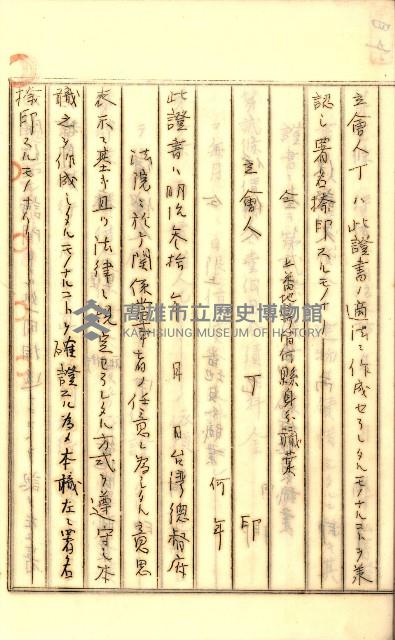 立會人丁ハ此證書ノ適法ニ作成セラレタルモノナルコトヲ承
認シ署名捺印スルモノナリ
仝上番地不詳何縣身分職業
立會人 丁 印
何年
此證書ハ明治參拾 年 月 日台湾總督府
法院ニ於テ関係 事者ノ任意ニ為シタル意思
表示ニ基キ且ツ法律ニ規定セラレタル方式ヲ遵守シ本
職之ヲ作成シタルモノナルコトヲ確證スル為メ本職左ニ署名
捺印スルモノナリ
高雄市立歷史博物館
KAOHSIUNG MUSEUM OF HISTORY